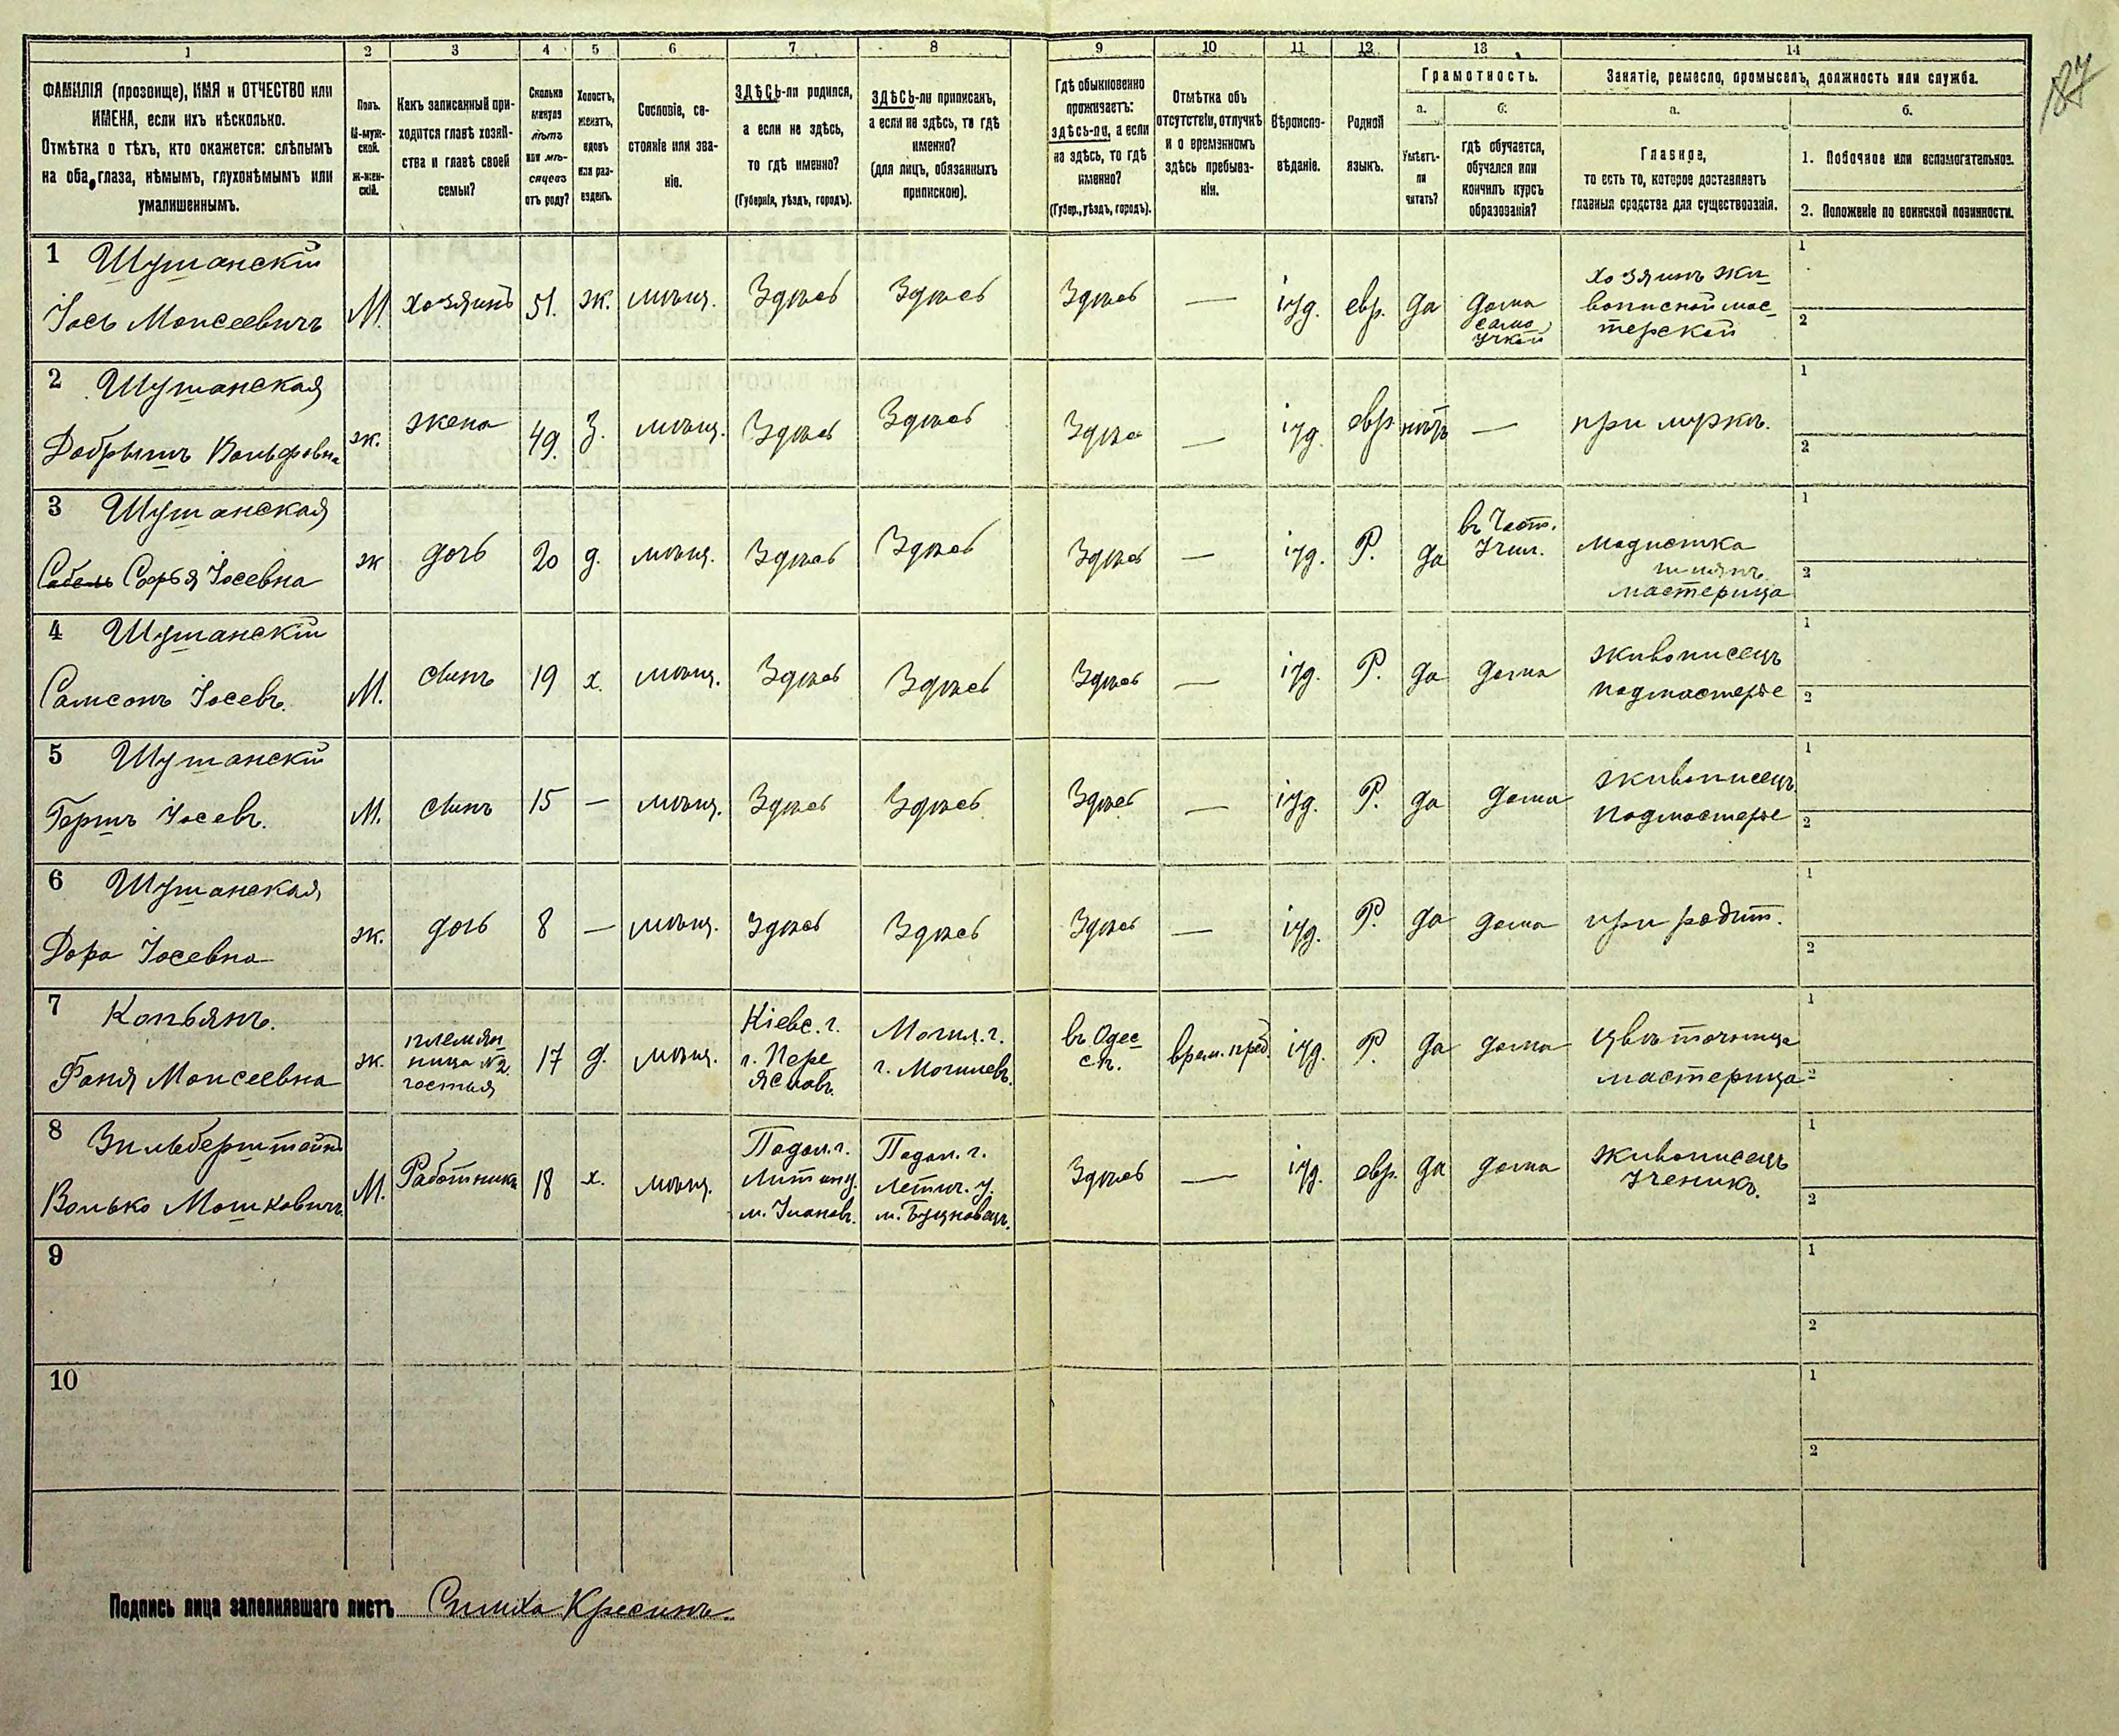 187
1 2 3 4 5 6 7 8 9 10 11 12 13 14
ФАМИЛІЯ (прозвище), ИМЯ и ОТЧЕСТВО или
ИМЕНА, если ихъ нѣсколько.
Отмѣтка о тѣхъ, кто окажется: слѣпымъ
на оба глаза, нѣмымъ, глухонѣмымъ или
умалишеннымъ.
Полъ.
М-муж-
ской.
Ж-жен-
скій.
Какъ записанный при-
ходится главѣ хозяй-
ства и главѣ своей
семьи?
Сколько
минуло
лѣтъ
или мѣ-
сяцевъ
отъ роду?
Холостъ,
женатъ,
вдовъ
или раз-
веденъ.
Сословіе, со-
стояніе или зва-
ніе.
ЗДѢСЬ-ли родился,
а если не здѣсь,
то гдѣ именно?
(Губернія, уѣздъ, городъ).
ЗДѢСЬ-ли приписанъ,
а если не здѣсь, то гдѣ
именно?
(для лицъ, обязанныхъ
припискою).
Гдѣ обыкновенно
проживаетъ:
здѣсь-ли, а если
не здѣсь, то гдѣ
именно?
(Губер., уѣздъ, городъ).
Отмѣтка объ
отсутствіи, отлучкѣ
и о временномъ
здѣсь пребыва-
ніи.
Вѣроиспо-
вѣданіе.
Родной
языкъ.
Грамотность.
а.
Умѣетъ-
ли
читать?
б.
гдѣ обучается,
обучался или
кончилъ курсъ
образованія?
Занятіе, ремесло, промыселъ, должность или служба.
а.
Главное,
то есть то, которое доставляетъ
главныя средства для существованія.
б.
1. Побочное или вспомогательное.
2. Положеніе по воинской повинности.
1 Шушанскій
Іось Моисеевичъ
М.
хозяинъ
51.
ж.
мѣщ.
Здѣсь
Здѣсь
Здѣсь
—
іуд.
евр.
да
дома
само
учкой
хозяинъ жи-
вописной мас-
терской
1
2
2 Шушанская
Добрышъ Вольфовна
ж.
жена
49.
З.
мѣщ.
Здѣсь
Здѣсь
Здѣсь
—
іуд.
евр.
нѣтъ
—
при мужѣ.
1
2
3 Шушанская
Софья Іосевна
ж
дочь
20
д.
мѣщ.
Здѣсь
Здѣсь
Здѣсь
—
іуд.
Р.
да
въ Част.
Учил.
Модистка
шляпъ
мастерица
1
2
4 Шушанскій
Самсонъ Іосевъ.
М.
сынъ
19
х.
мѣщ.
Здѣсь
Здѣсь
Здѣсь
—
іуд.
Р.
да
дома
живописецъ
подмастерье
1
2
5 Шушанскій
Гершъ Іосевъ.
М.
сынъ
15
—
мѣщ.
Здѣсь
Здѣсь
Здѣсь
—
іуд.
Р.
да
дома
живописецъ
подмастерье
1
2
6 Шушанская
Дора Іосевна
ж.
дочь
8
—
мѣщ.
Здѣсь
Здѣсь
Здѣсь
—
іуд.
Р.
да
дома
при родит.
1
2
7 Копьянъ.
Фаня Моисеевна
ж.
племян
ница №2
гостья
17
д.
мѣщ.
Кіевс. г.
г. Пере
яславъ.
Могил. г.
г. Могилевъ.
въ Одес
сѣ.
врем. преб.
іуд.
Р.
да
дома
цвѣточница
мастерица
1
2
8 Зильберштейнъ
Волько Мошковичъ
М.
Работникъ
18
х.
мѣщ.
Подол. г.
Литинц.
м. Улановъ.
Подол. г.
Летич. у.
м. Буцновецъ.
Здѣсь
—
іуд.
евр.
да
дома
живописецъ
ученикъ.
1
2
9
1
2
10
1
2
Подпись лица заполнявшаго листъ Симха Кресинъ.